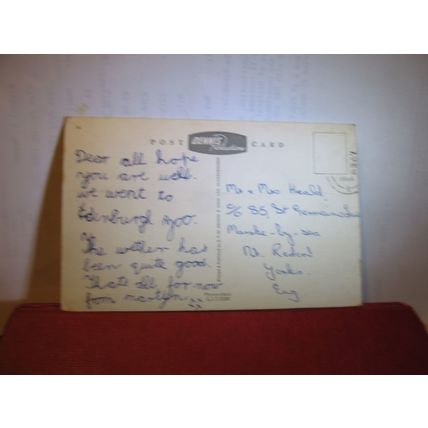 POST DENNIS Productions CARD
Dear all hope
you are well.
we went to
Edinburgh zoo.
The wether has
been quite good.
Thats all for now
from martyn
Mr & Mrs Heald,
c/o 85, St
Marske-by-sea
Nr. Redcar
Yorks.
Eng